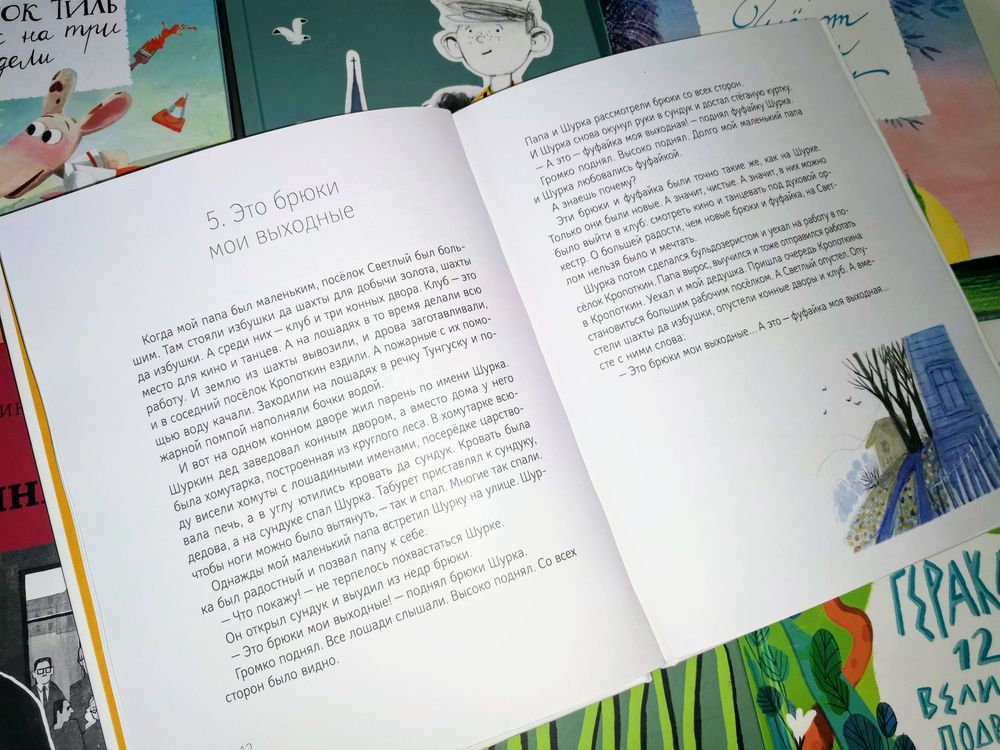 ОК ТИЛЬ
на три
дели
5. Это брюки
мои выходные
Когда мой папа был маленьким, посёлок Светлый был боль-
шим. Там стояли избушки да шахты для добычи золота, шахты
да избушки. А среди них — клуб и три конных двора. Клуб — это
место для кино и танцев. А на лошадях в то время делали всю
работу. И землю из шахты вывозили, и дрова заготавливали,
и в соседний посёлок Кропоткин ездили. А пожарные с их помо-
щью воду качали. Заходили на лошадях в речку Тунгуску и по-
жарной помпой наполняли бочки водой.
И вот на одном конном дворе жил парень по имени Шурка.
Шуркин дед заведовал конным двором, а вместо дома у него
была хомутарка, построенная из круглого леса. В хомутарке всю-
ду висели хомуты с лошадиными именами, посерёдке царство-
вала печь, а в углу ютились кровать да сундук. Кровать была
дедова, а на сундуке спал Шурка. Табурет приставлял к сундуку,
чтобы ноги можно было вытянуть, — так и спал. Многие так спали.
Однажды мой маленький папа встретил Шурку на улице. Шур-
ка был радостный и позвал папу к себе.
— Что покажу! — не терпелось похвастаться Шурке.
Он открыл сундук и выудил из недр брюки.
— Это брюки мои выходные! — поднял брюки Шурка.
Громко поднял. Все лошади слышали. Высоко поднял. Со всех
сторон было видно.
12
Папа и Шурка рассмотрели брюки со всех сторон.
И Шурка снова окунул руки в сундук и достал стёганую куртку.
— А это — фуфайка моя выходная! — поднял фуфайку Шурка.
Громко поднял. Высоко поднял. Долго мой маленький папа
и Шурка любовались фуфайкой.
А знаешь почему?
Эти брюки и фуфайка были точно такие же, как на Шурке.
Только они были новые. А значит, чистые. А значит, в них можно
было выйти в клуб: смотреть кино и танцевать под духовой ор-
кестр. О большей радости, чем новые брюки и фуфайка, на Свет-
лом нельзя было и мечтать.
Шурка потом сделался бульдозеристом и уехал на работу в по-
сёлок Кропоткин. Папа вырос, выучился и тоже отправился работать
в Кропоткин. Уехал и мой дедушка. Пришла очередь Кропоткина
становиться большим рабочим посёлком. А Светлый опустел. Опу-
стели шахты да избушки, опустели конные дворы и клуб. А вме-
сте с ними слова:
— Это брюки мои выходные... А это — фуфайка моя выходная...
ГЕРАК
12
ВЕЛИ
ПОДВ